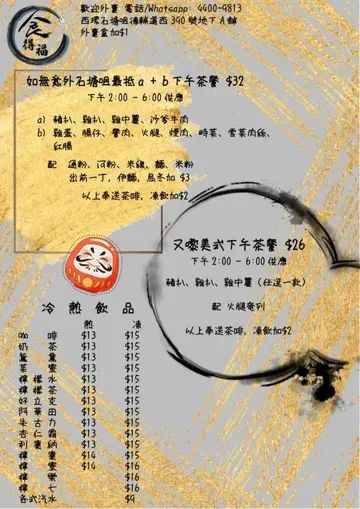 食得福
歡迎外賣 電話/Whatsapp: 4400-9813
西環石塘咀德輔道西 390 號地下 A 舖
外賣盒加$1
如無意外石塘咀最抵 a + b 下午茶餐 $32
下午 2:00 - 6:00 供應
a) 豬扒、雞扒、雞中翼、沙爹牛肉
b) 雞蛋、腸仔、餐肉、火腿、煙肉、時菜、雪菜肉絲、
紅腸
配 通粉、河粉、米線、麵、米粉
出前一丁, 伊麵, 烏冬加 $3
以上奉送茶啡, 凍飲加$2
又嚟美式下午茶餐 $26
下午 2:00 - 6:00 供應
豬扒、雞扒、雞中翼 (任選一款)
配 火腿奄列
以上奉送茶啡, 凍飲加$2
冷熱飲品
熱 凍
咖啡 $13 $15
奶茶 $13 $15
鴛鴦 $13 $15
菜蜜 $13 $15
檸檬水 $13 $15
檸檬茶 $13 $15
好立克 $13 $15
阿華田 $13 $15
朱古力 $13 $15
杏仁霜 $13 $15
利賓納 $13 $15
檸賓 $14 $16
檸蜜 $14 $16
檸樂 $16
檸七 $16
各式汽水 $9